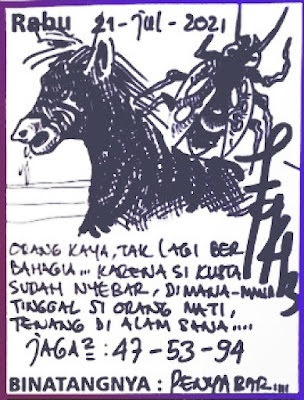 Rabu 21-jul-2021
ORANG KAYA, TAK LAGI BER
BAHAGIA... KARENA SI KUSTA
SUDAH NYEBAR, DI MANA-MANA
TINGGAL SI ORANG MATI,
TENANG DI ALAM SANA....
JAGA² : 47-53-94
BINATANGNYA : PENYABAR....